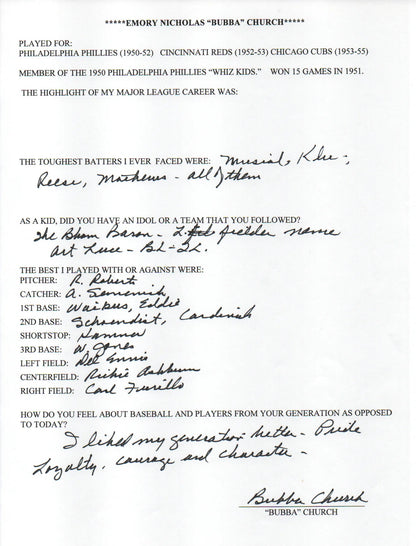 *****EMORY NICHOLAS "BUBBA" CHURCH*****
PLAYED FOR:
PHILADELPHIA PHILLIES (1950-52) CINCINNATI REDS (1952-53) CHICAGO CUBS (1953-55)
MEMBER OF THE 1950 PHILADELPHIA PHILLIES "WHIZ KIDS." WON 15 GAMES IN 1951.
THE HIGHLIGHT OF MY MAJOR LEAGUE CAREER WAS:
THE TOUGHEST BATTERS I EVER FACED WERE: Musial, Klu-,
Reese, Mathews - all of them
AS A KID, DID YOU HAVE AN IDOL OR A TEAM THAT YOU FOLLOWED?
The Bham Baron - L. fielder name
Art Luce - BL-TL.
THE BEST I PLAYED WITH OR AGAINST WERE:
PITCHER: R. Roberts
CATCHER: A. Seminick
1ST BASE: Waitkus, Eddie
2ND BASE: Schoendist, Cardinals
SHORTSTOP: Hamner
3RD BASE: W. Jones
LEFT FIELD: Del Ennis
CENTERFIELD: Richie Ashburn
RIGHT FIELD: Carl Furillo
HOW DO YOU FEEL ABOUT BASEBALL AND PLAYERS FROM YOUR GENERATION AS OPPOSED
TO TODAY?
I liked my generation better - Pride
Loyalty, courage and character -
Bubba Church
"BUBBA" CHURCH